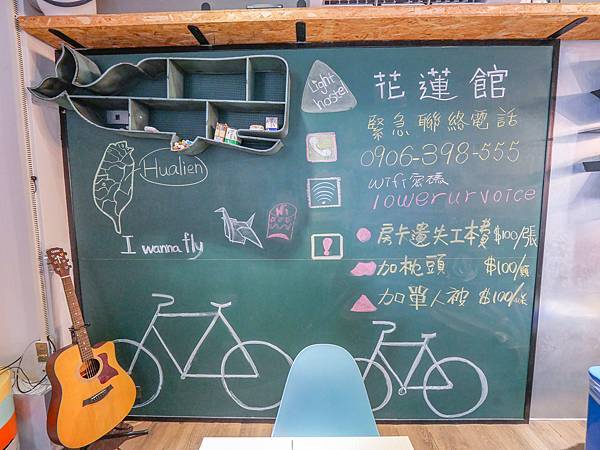 Light
hostel
花蓮館
緊急聯絡電話
0906-398-555
wifi密碼
loweryrvoice
Hualien
I wanna fly
房卡遺失工本費 $100/張
加枕頭 $100/顆
加單人被 $100/床